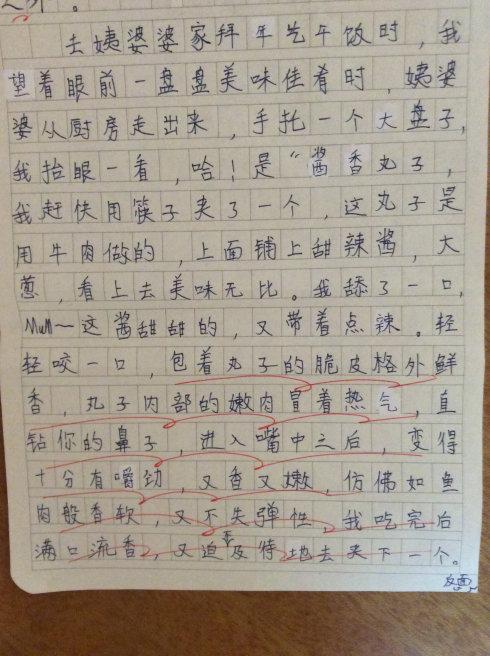 去姨婆婆家拜年吃午饭时，我
望着眼前一盘盘美味佳肴时，姨婆
婆从厨房走出来，手托一个大盘子，
我抬眼一看，哈！是“酱香丸子，
我赶快用筷子夹了一个，这丸子是
用牛肉做的，上面铺上甜辣酱，大
葱，看上去美味无比。我舔了一口，
MuM～这酱甜甜的，又带着点辣。轻
轻咬一口，包着丸子的脆皮格外鲜
香，丸子内部的嫩肉冒着热气，直
钻你的鼻子，进入嘴中之后，变得
十分有嚼劲，又香又嫩，仿佛如鱼
肉般香软，又不失弹性，我吃完后
满口流香，又迫不及待地去夹下一个。
反面